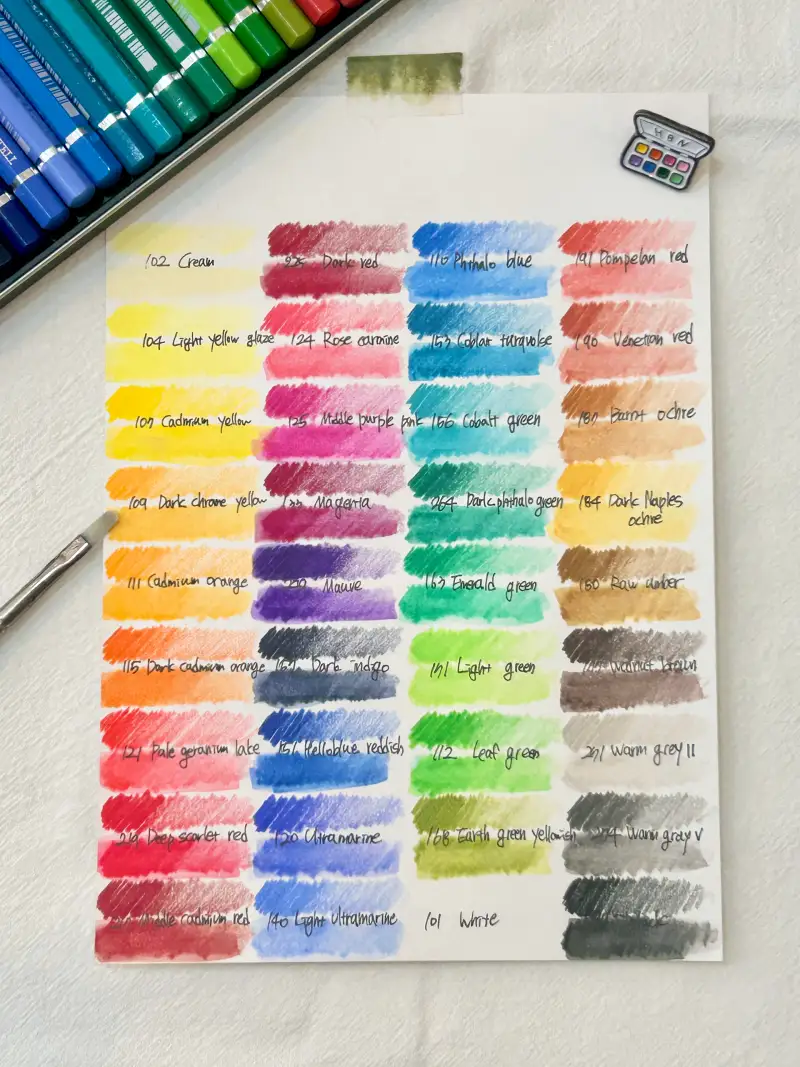 102 Cream
104 Light yellow glaze
107 Cadmium yellow
109 Dark chrome yellow
111 Cadmium orange
115 Dark cadmium orange
121 Pale geranium lake
219 Deep scarlet red
Middle cadmium red
225 Dark red
124 Rose carmine
125 Middle purple pink
133 Magenta
Mauve
157 Dark indigo
151 Helioblue reddish
120 Ultramarine
140 Light Ultramarine
110 Phthalo blue
153 Coblat turquoise
156 Cobalt green
264 Dark phthalo green
163 Emerald green
171 Light green
112 Leaf green
168 Earth green yellowish
101 White
191 Pompeian red
190 Venetian red
187 Burnt ochre
184 Dark Naples
ochre
180 Raw umber
Walnut brown
271 Warm grey II
274 Warm gray V